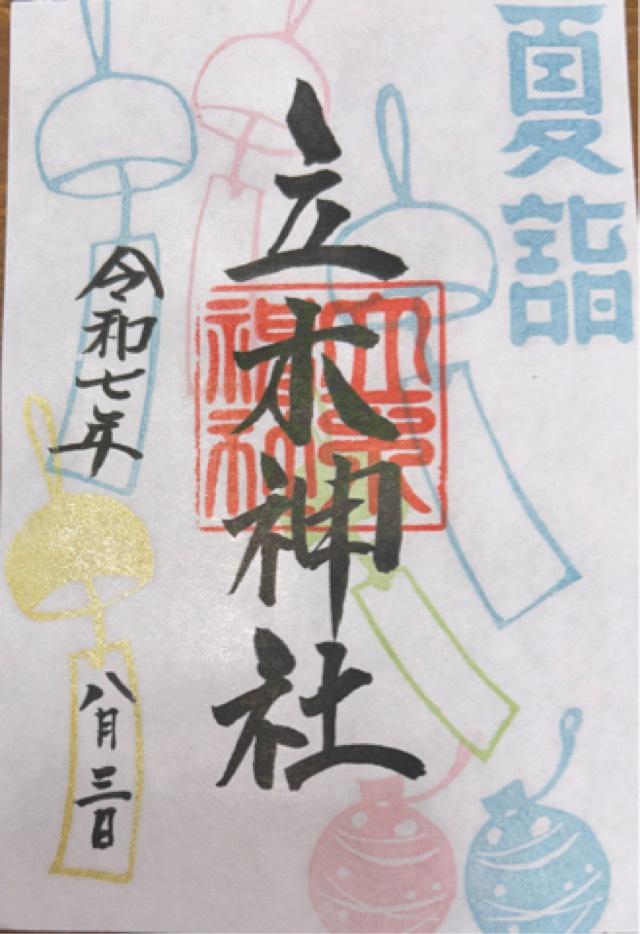 夏詣
立木神社
立木神社
令和七年
八月三日